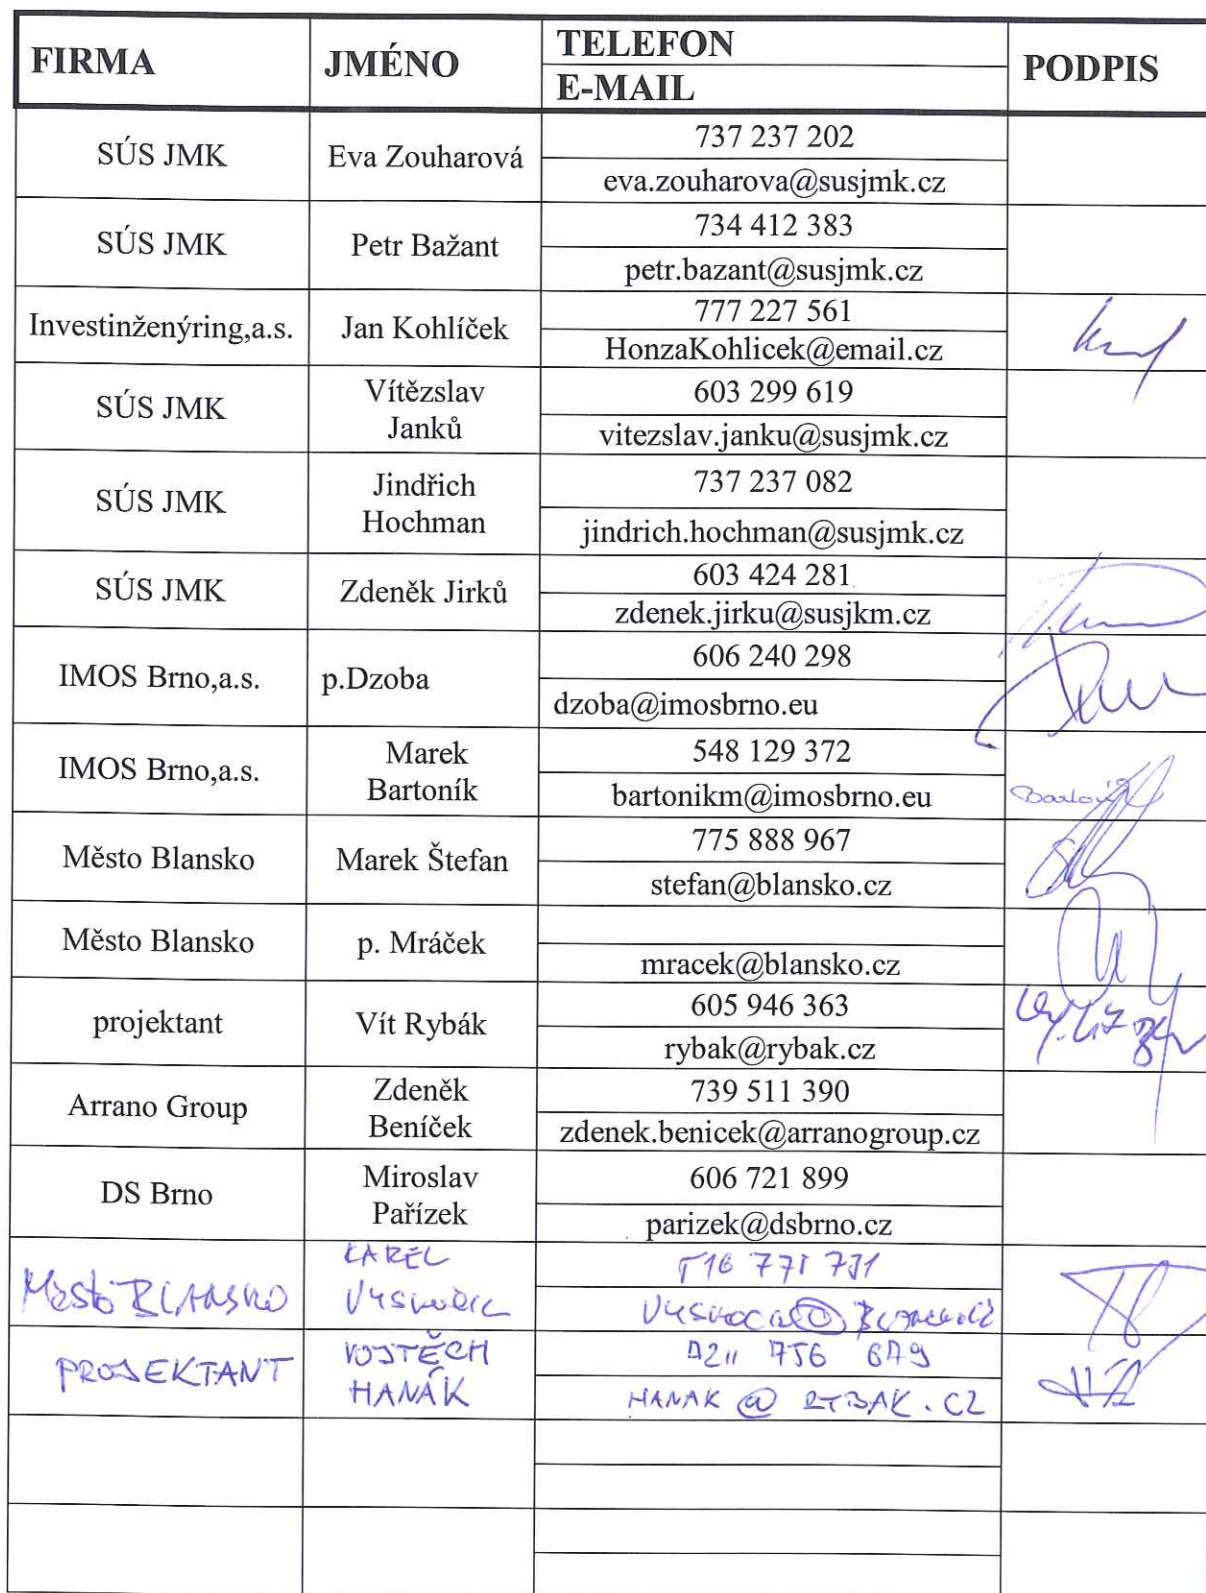 FIRMA JMÉNO TELEFON PODPIS
E-MAIL
SÚS JMK Eva Zouharová 737 237 202
eva.zouharova@susjmk.cz
SÚS JMK Petr Bažant 734 412 383
petr.bazant@susjmk.cz
Investinženýring,a.s. Jan Kohlíček 777 227 561
HonzaKohlicek@email.cz
SÚS JMK Vítězslav 603 299 619
Janků vitezslav.janku@susjmk.cz
SÚS JMK Jindřich 737 237 082
Hochman jindrich.hochman@susjmk.cz
SÚS JMK Zdeněk Jirků 603 424 281
zdenek.jirku@susjkm.cz
IMOS Brno,a.s. p.Dzoba 606 240 298
dzoba@imosbrno.eu
IMOS Brno,a.s. Marek 548 129 372
Bartoník bartonikm@imosbrno.eu
Město Blansko Marek Štefan 775 888 967
stefan@blansko.cz
Město Blansko p. Mráček
mracek@blansko.cz
projektant Vít Rybák 605 946 363
rybak@rybak.cz
Arrano Group Zdeněk 739 511 390
Beníček zdenek.benicek@arranogroup.cz
DS Brno Miroslav 606 721 899
Pařízek parizek@dsbrno.cz
Město BLANSKO KAREL
PROJEKTANT VOJTĚCH
HANÁK HANAK @ RYBAK.CZ